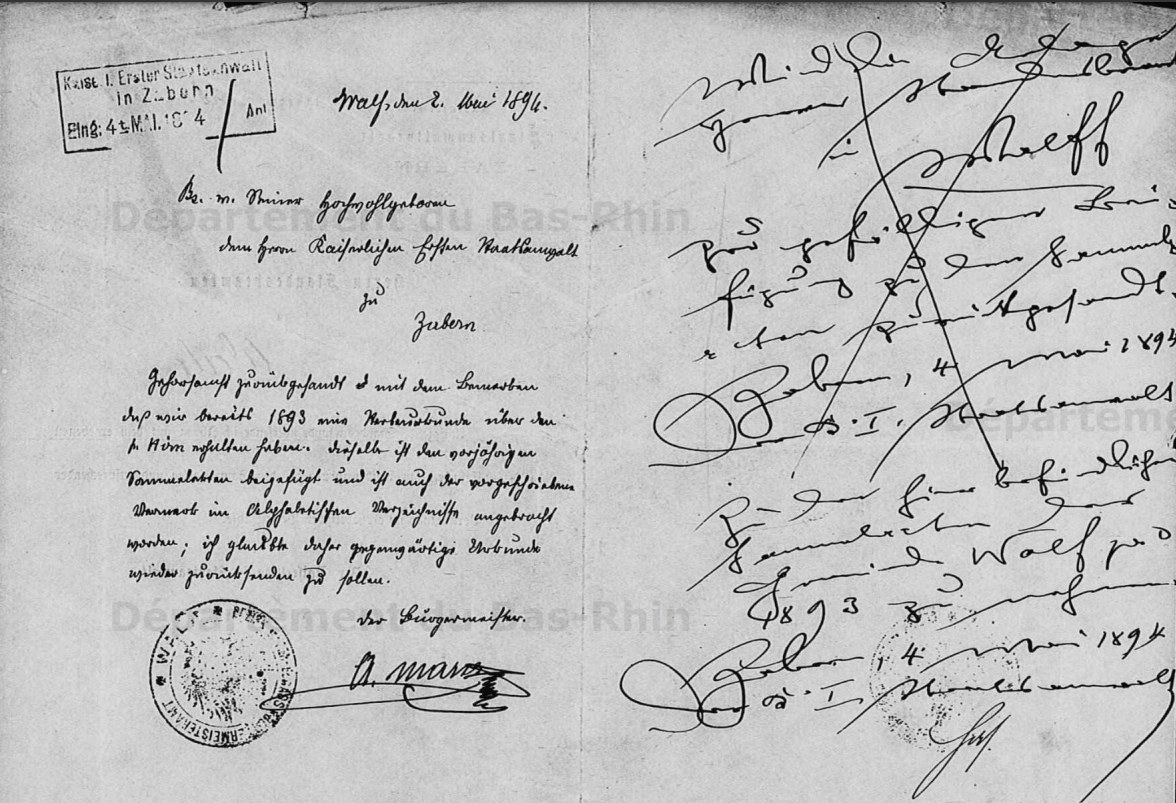 Kaiserl. Erster Staatsanwalt
in Zabern
Eing: 4t MAI. 1894 Anl
Walf, den 2. Mai 1894.
Br. m. Seiner Hochwohlgeboren
dem Herrn Kaiserlichen Ersten Staatsanwalt
zu
Zabern
Gehorsamst zurückgesandt mit dem Bemerken
daß wir bereits 1893 eine Urkunde über den
erhalten haben. dieselbe ist den vorjährigen
Sammelakten beigefügt und ist auch der vorgeschriebene
Vermerk im Alphabetischen Verzeichnisse angebracht
worden; ich glaubte daher gegenwärtige Urkunde
wieder zurücksenden zu sollen.
Der Bürgermeister.
WALF
BÜRGERMEISTERAMT
Herrn Standesbeamten
in Walff
zur gefälligen Bei-
fügung zu den Sammel-
akten zurückgesandt.
Zabern, 4 Mai 1894
D. I. Staatsanwalt
Zu den hier befindlichen
Sammelakten der
Gemeinde Walf pro
1893 zu nehmen
Zabern, 4 Mai 1894
D. I. Staatsanwalt
Département du Bas-Rhin
Département du Bas-Rhin